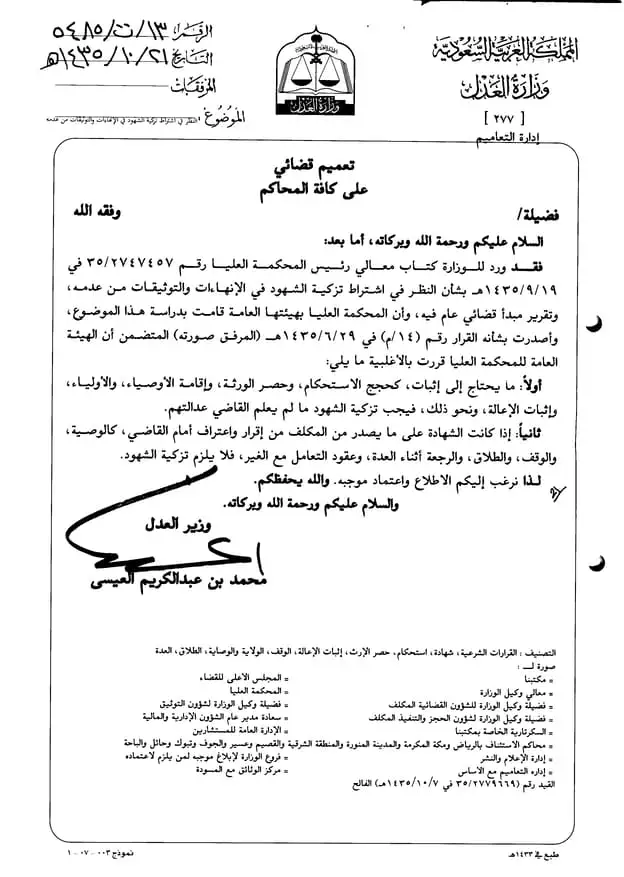 المملكة العربية السعودية
وزارة العدل
[ ٢٧٧ ]
إدارة التعاميم
وزارة العدل
الرقم: ١٣/ت/٥٤٨٥
التاريخ ١٤٣٥/١٠/٢١هـ
المرفقات
الموضوع: النظر في اشتراط تزكية الشهود في الإنهاءات والتوثيقات من عدمه
تعميم قضائي
على كافة المحاكم
فضيلة/ وفقه الله
السلام عليكم ورحمة الله وبركاته، أما بعد:
فقد ورد للوزارة كتاب معالي رئيس المحكمة العليا رقم ٣٥/٢٧٤٧٤٥٧ في
١٤٣٥/٩/١٩هـ بشأن النظر في اشتراط تزكية الشهود في الإنهاءات والتوثيقات من عدمه،
وتقرير مبدأ قضائي عام فيه، وأن المحكمة العليا بهيئتها العامة قامت بدراسة هذا الموضوع،
وأصدرت بشأنه القرار رقم (١٤/م) في ١٤٣٥/٦/٢٩هـ (المرفق صورته) المتضمن أن الهيئة
العامة للمحكمة العليا قررت بالأغلبية ما يلي:
أولاً: ما يحتاج إلى إثبات، كحجج الاستحكام، وحصر الورثة، وإقامة الأوصياء، والأولياء،
وإثبات الإعالة، ونحو ذلك، فيجب تزكية الشهود ما لم يعلم القاضي عدالتهم.
ثانياً: إذا كانت الشهادة على ما يصدر من المكلف من إقرار واعتراف أمام القاضي، كالوصية،
والوقف، والطلاق، والرجعة أثناء العدة، وعقود التعامل مع الغير، فلا يلزم تزكية الشهود.
لذا نرغب إليكم الاطلاع واعتماد موجبه. والله يحفظكم.
والسلام عليكم ورحمة الله وبركاته.
وزير العدل
محمد بن عبدالكريم العيسى
التصنيف : القرارات الشرعية، شهادة، استحكام، حصر الإرث، إثبات الإعالة، الوقف، الولاية والوصاية، الطلاق، العدة
صورة لـــ :
= مكتبنا = المجلس الأعلى للقضاء
= معالي وكيل الوزارة = المحكمة العليا
= فضيلة وكيل الوزارة للشؤون القضائية المكلف = فضيلة وكيل الوزارة لشؤون التوثيق
= فضيلة وكيل الوزارة لشؤون الحجز والتنفيذ المكلف = سعادة مدير عام الشؤون الإدارية والمالية
= السكرتارية الخاصة بمكتبنا = الإدارة العامة للمستشارين
= محاكم الاستئناف بالرياض ومكة المكرمة والمدينة المنورة والمنطقة الشرقية والقصيم وعسير والجوف وتبوك وحائل والباحة
= إدارة الإعلام والنشر = فروع الوزارة لإبلاغ موجبه لمن يلزم لاعتماده
= إدارة التعاميم مع الأساس = مركز الوثائق مع المسودة
القيد رقم (٣٥/٢٧٧٩٦٦٩ في ١٤٣٥/١٠/٧هـ) الفالح
طبع في ١٤٣٣هـ نموذج ٠٠٣ - ٠٧ - ١